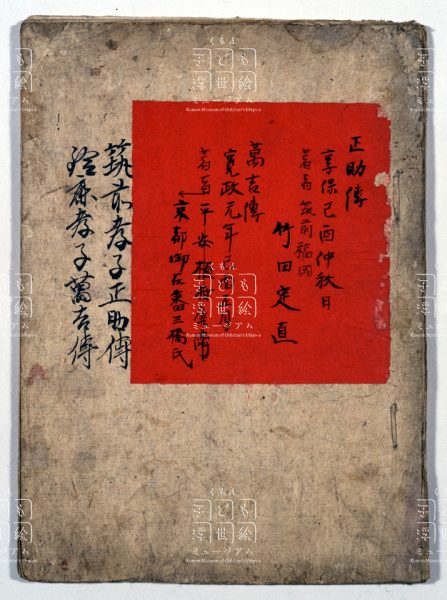 正助傳
享保己酉仲秋日
著者 筑前福岡
竹田定直
萬吉傳
寛政元年己酉
著者 平安
京都御在番三橋氏
筑前孝子正助傳
鈴鹿孝子萬吉傳
くもん
子ども浮世絵
ミュージアム
Kumon Museum of Children's Ukiyo-e